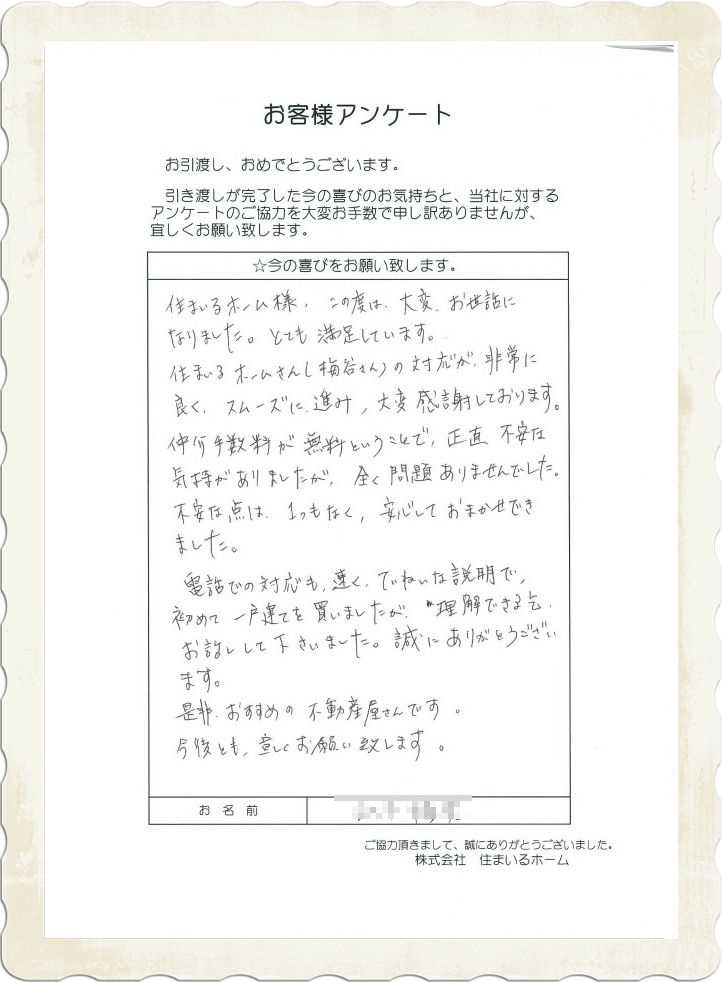 お客様アンケート
お引渡し、おめでとうございます。
引き渡しが完了した今の喜びのお気持ちと、当社に対する
アンケートのご協力を大変お手数で申し訳ありませんが、
宜しくお願い致します。
☆今の喜びをお願い致します。
住まいるホーム様、この度は、大変、お世話に
なりました。とても満足しています。
住まいるホームさん(梅谷さん)の対応が、非常に
良く、スムーズに、進み、大変感謝しております。
仲介手数料が無料ということで、正直不安な
気持がありましたが、全く問題ありませんでした。
不安な点は、1つもなく、安心しておまかせでき
ました。
電話での対応も、速く、ていねいな説明で、
初めて一戸建てを買いましたが、理解できる迄、
お話しして下さいました。誠にありがとうござい
ます。
是非、おすすめの不動産屋さんです。
今後とも、宜しくお願い致します。
お名前
ご協力頂きまして、誠にありがとうございました。
株式会社 住まいるホーム